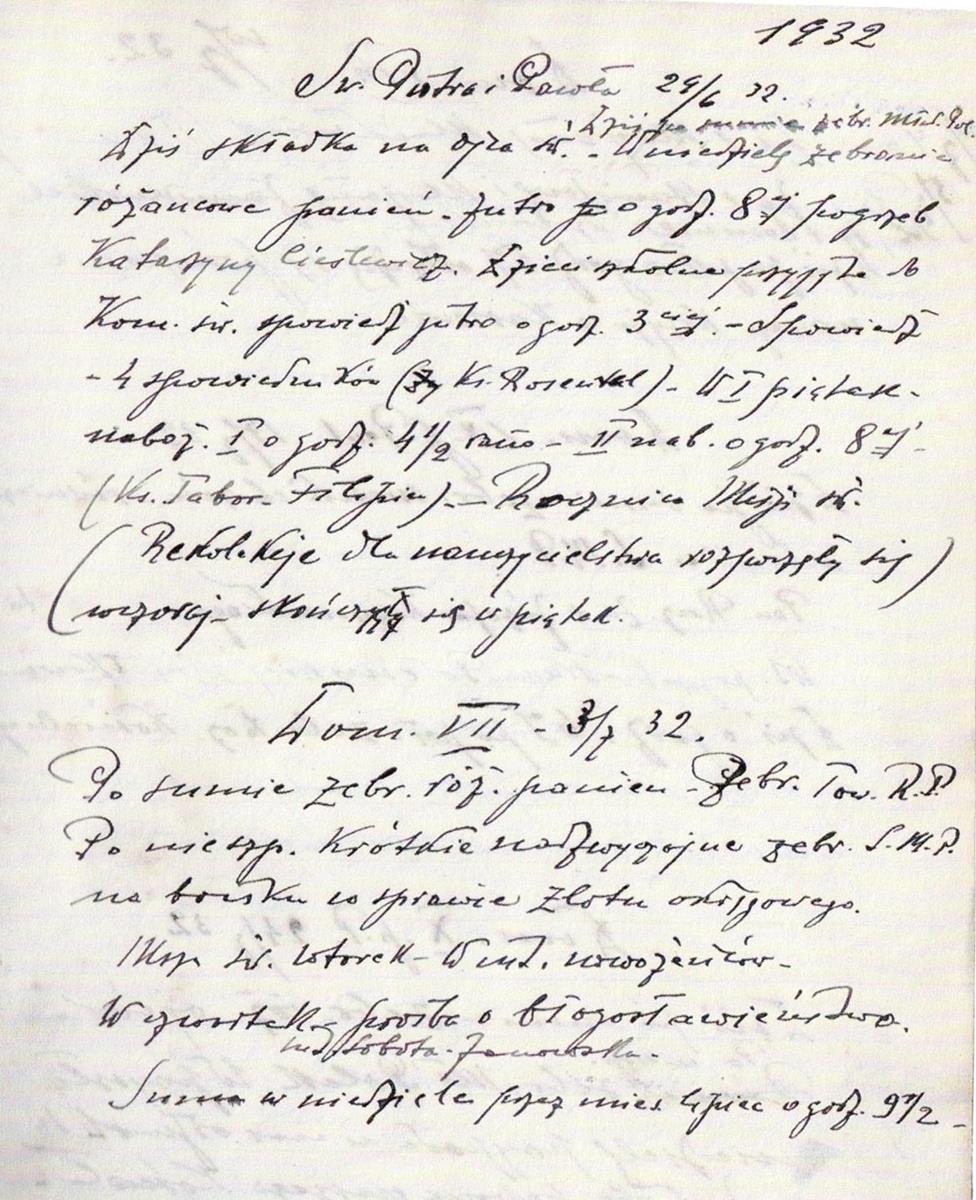 1932
Św. Piotra i Pawła 29/6 32.
Dziś po sumie zebr. Młod. Pol.
Dziś składka na Ojca św. - W niedzielę zebranie
różańcowe panien - Jutro o godz. 8ej pogrzeb
Katarzyny Cieslewicz. Dzieci szkolne przyjęte do
Kom. św. spowiedź jutro o godz. 3ciej. - Spowiedź
- 4 spowiedników ( Ks. Rosental) - W I piątek -
naboż. I o godz. 4 1/2 rano - II nab. o godz. 8ej -
(Ks. Tabor - Filipin) - Rocznica Misji św.
(Rekolekcje dla nauczycielstwa rozpoczęły się)
wczoraj - skończą się w piątek.
Dom. VII - 3/7 32.
Po sumie zebr. róż. panien - Zebr. Tow. R.P.
Po nieszp. krótkie nadzwyczajne zebr. S.M.P.
na boisku w sprawie zlotu okręgowego.
Msza św. wtorek - W int. nowożeńców -
W czwartek - prośba o błogosławieństwo.
sobota - Janowska -
Suma w niedziele przez mies. lipiec o godz. 9 1/2 -